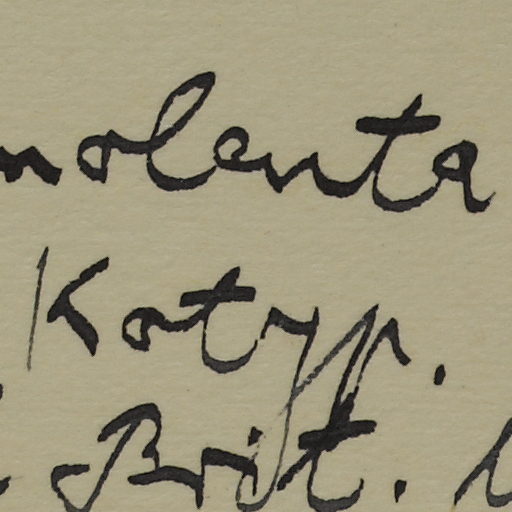 nolenta
Kotyp.
Brit.